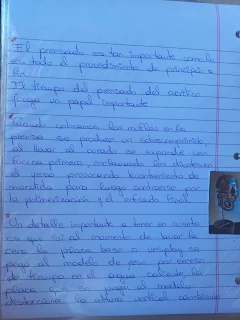 El prensado es tan importante como lo
es todo el procedimiento de principio a
fin.
El tiempo del prensado del acrílico
juega un papel importante
Cuando colocamos las muflas en la
prensa se produce un sobrecomprimido
al llevar al curado se expande con
fuerza primero, rechazando los dientes en
el yeso provocando levantamiento de
mordida para luego contraerse por
la polimerización y el enfriado final
Un detalle importante a tener en cuenta
es que si al momento de lavar la
cera la placa base o se
pega al modelo de yeso por exceso
de tiempo en el agua caliente, la
placa que se pega al modelo
distorciona la altura vertical cambiando